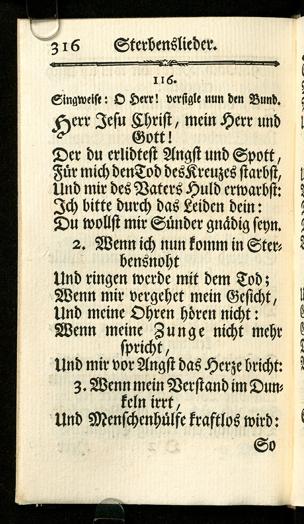 316 Sterbenslieder.
116.
Singweise: O Herr! versigle nun den Bund.
Herr Jesu Christ, mein Herr und
Gott!
Der du erlidtest Angst und Spott,
Für mich den Tod des Kreuzes starbst,
Und mir des Vaters Huld erwarbst:
Ich bitte durch das Leiden dein:
Du wollst mir Sünder gnädig seyn.
2. Wenn ich nun komm in Ster-
bensnoht
Und ringen werde mit dem Tod;
Wenn mir vergehet mein Gesicht,
Und meine Ohren hören nicht:
Wenn meine Zunge nicht mehr
spricht,
Und mir vor Angst das Herze bricht:
3. Wenn mein Verstand im Dun-
keln irrt,
Und Menschenhülfe kraftlos wird:
So